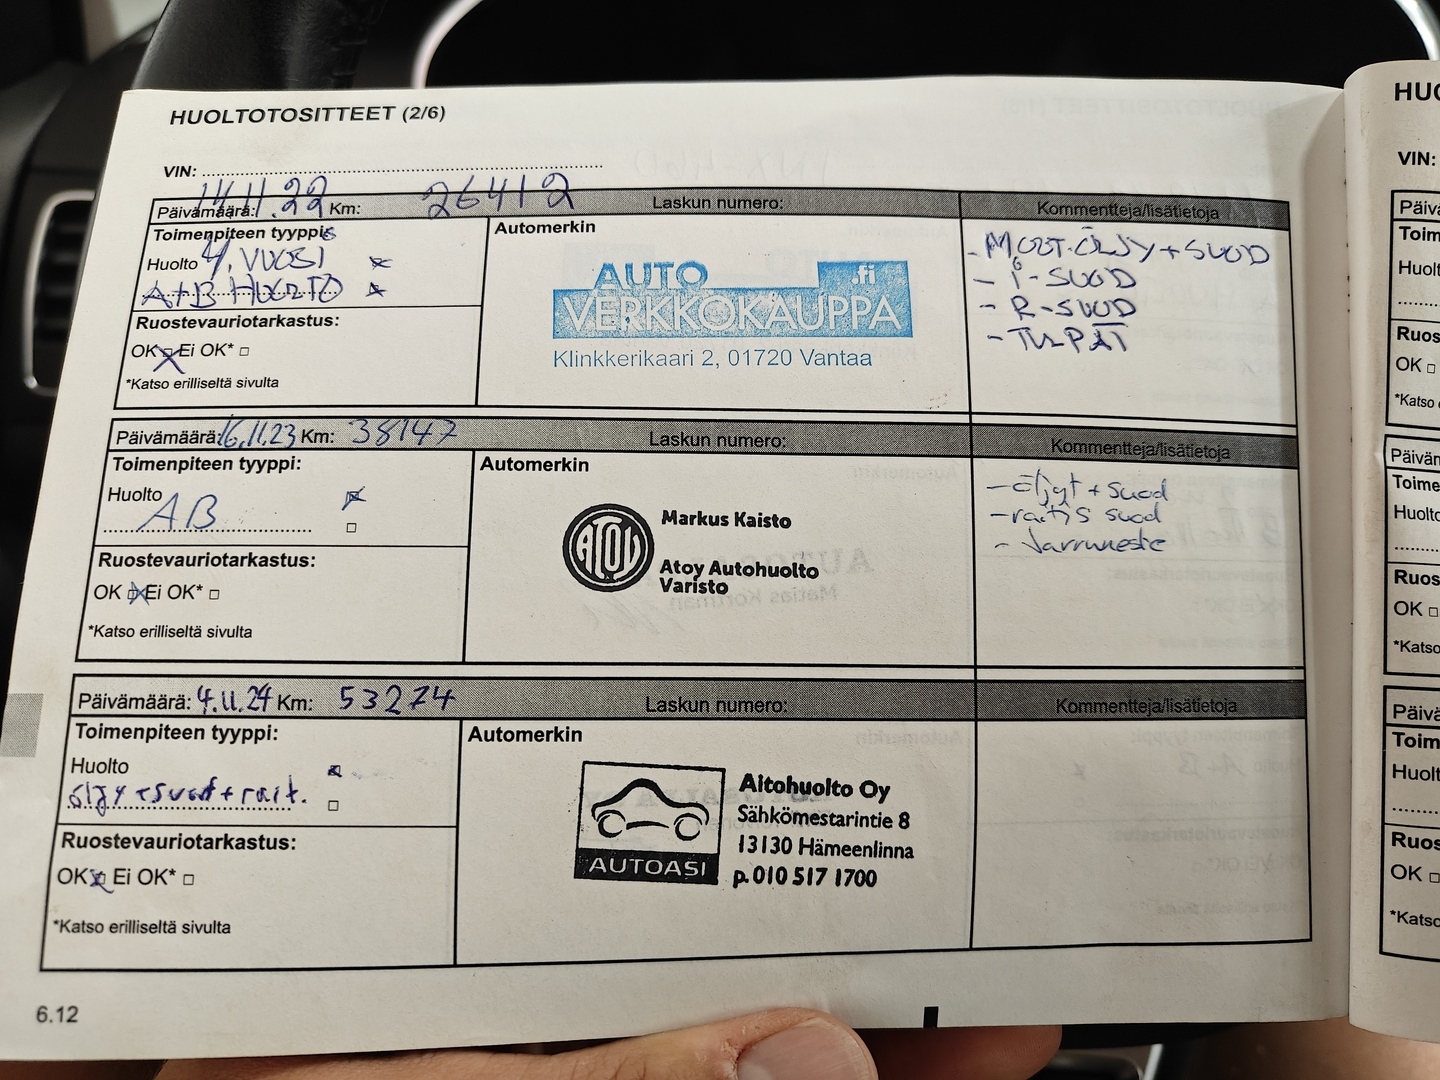 HUOLTOTOSITTEET (2/6)
VIN:
Päivämäärä: 14.11.22 Km: 26412 Laskun numero: Kommentteja/lisätietoja
Toimenpiteen tyyppi:
Huolto 4. VUOSI
A+B HUOLTO
Ruostevauriotarkastus:
OK Ei OK*
*Katso erilliseltä sivulta
Automerkin
AUTO .fi
VERKKOKAUPPA
Klinkkerikaari 2, 01720 Vantaa
- MOOT.ÖLJY+SUOD
- i-SUOD
- R-SUOD
- TULPAT
Päivämäärä: 16.11.23 Km: 38147 Laskun numero: Kommentteja/lisätietoja
Toimenpiteen tyyppi:
Huolto
AB
Ruostevauriotarkastus:
OK Ei OK*
*Katso erilliseltä sivulta
Automerkin
ATOY
Markus Kaisto
Atoy Autohuolto
Varisto
- öljyt + suod
- raitis suod
- Jarruneste
Päivämäärä: 4.11.24 Km: 53274 Laskun numero: Kommentteja/lisätietoja
Toimenpiteen tyyppi:
Huolto
öljy + suod + rait.
Ruostevauriotarkastus:
OK Ei OK*
*Katso erilliseltä sivulta
Automerkin
AUTOASI
Aitohuolto Oy
Sähkömestarintie 8
13130 Hämeenlinna
p. 010 517 1700
6.12
HUO
VIN:
Päivä
Toim
Huolt
Ruos
OK
*Katso
Päivän
Toime
Huolto
Ruos
OK
*Katso
Päivä
Toim
Huolt
Ruos
OK
*Katso